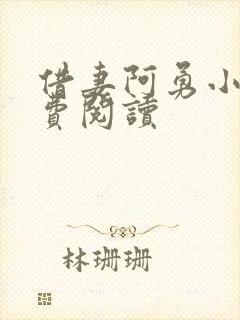 借妻阿勇小
費閱讀
林珊珊